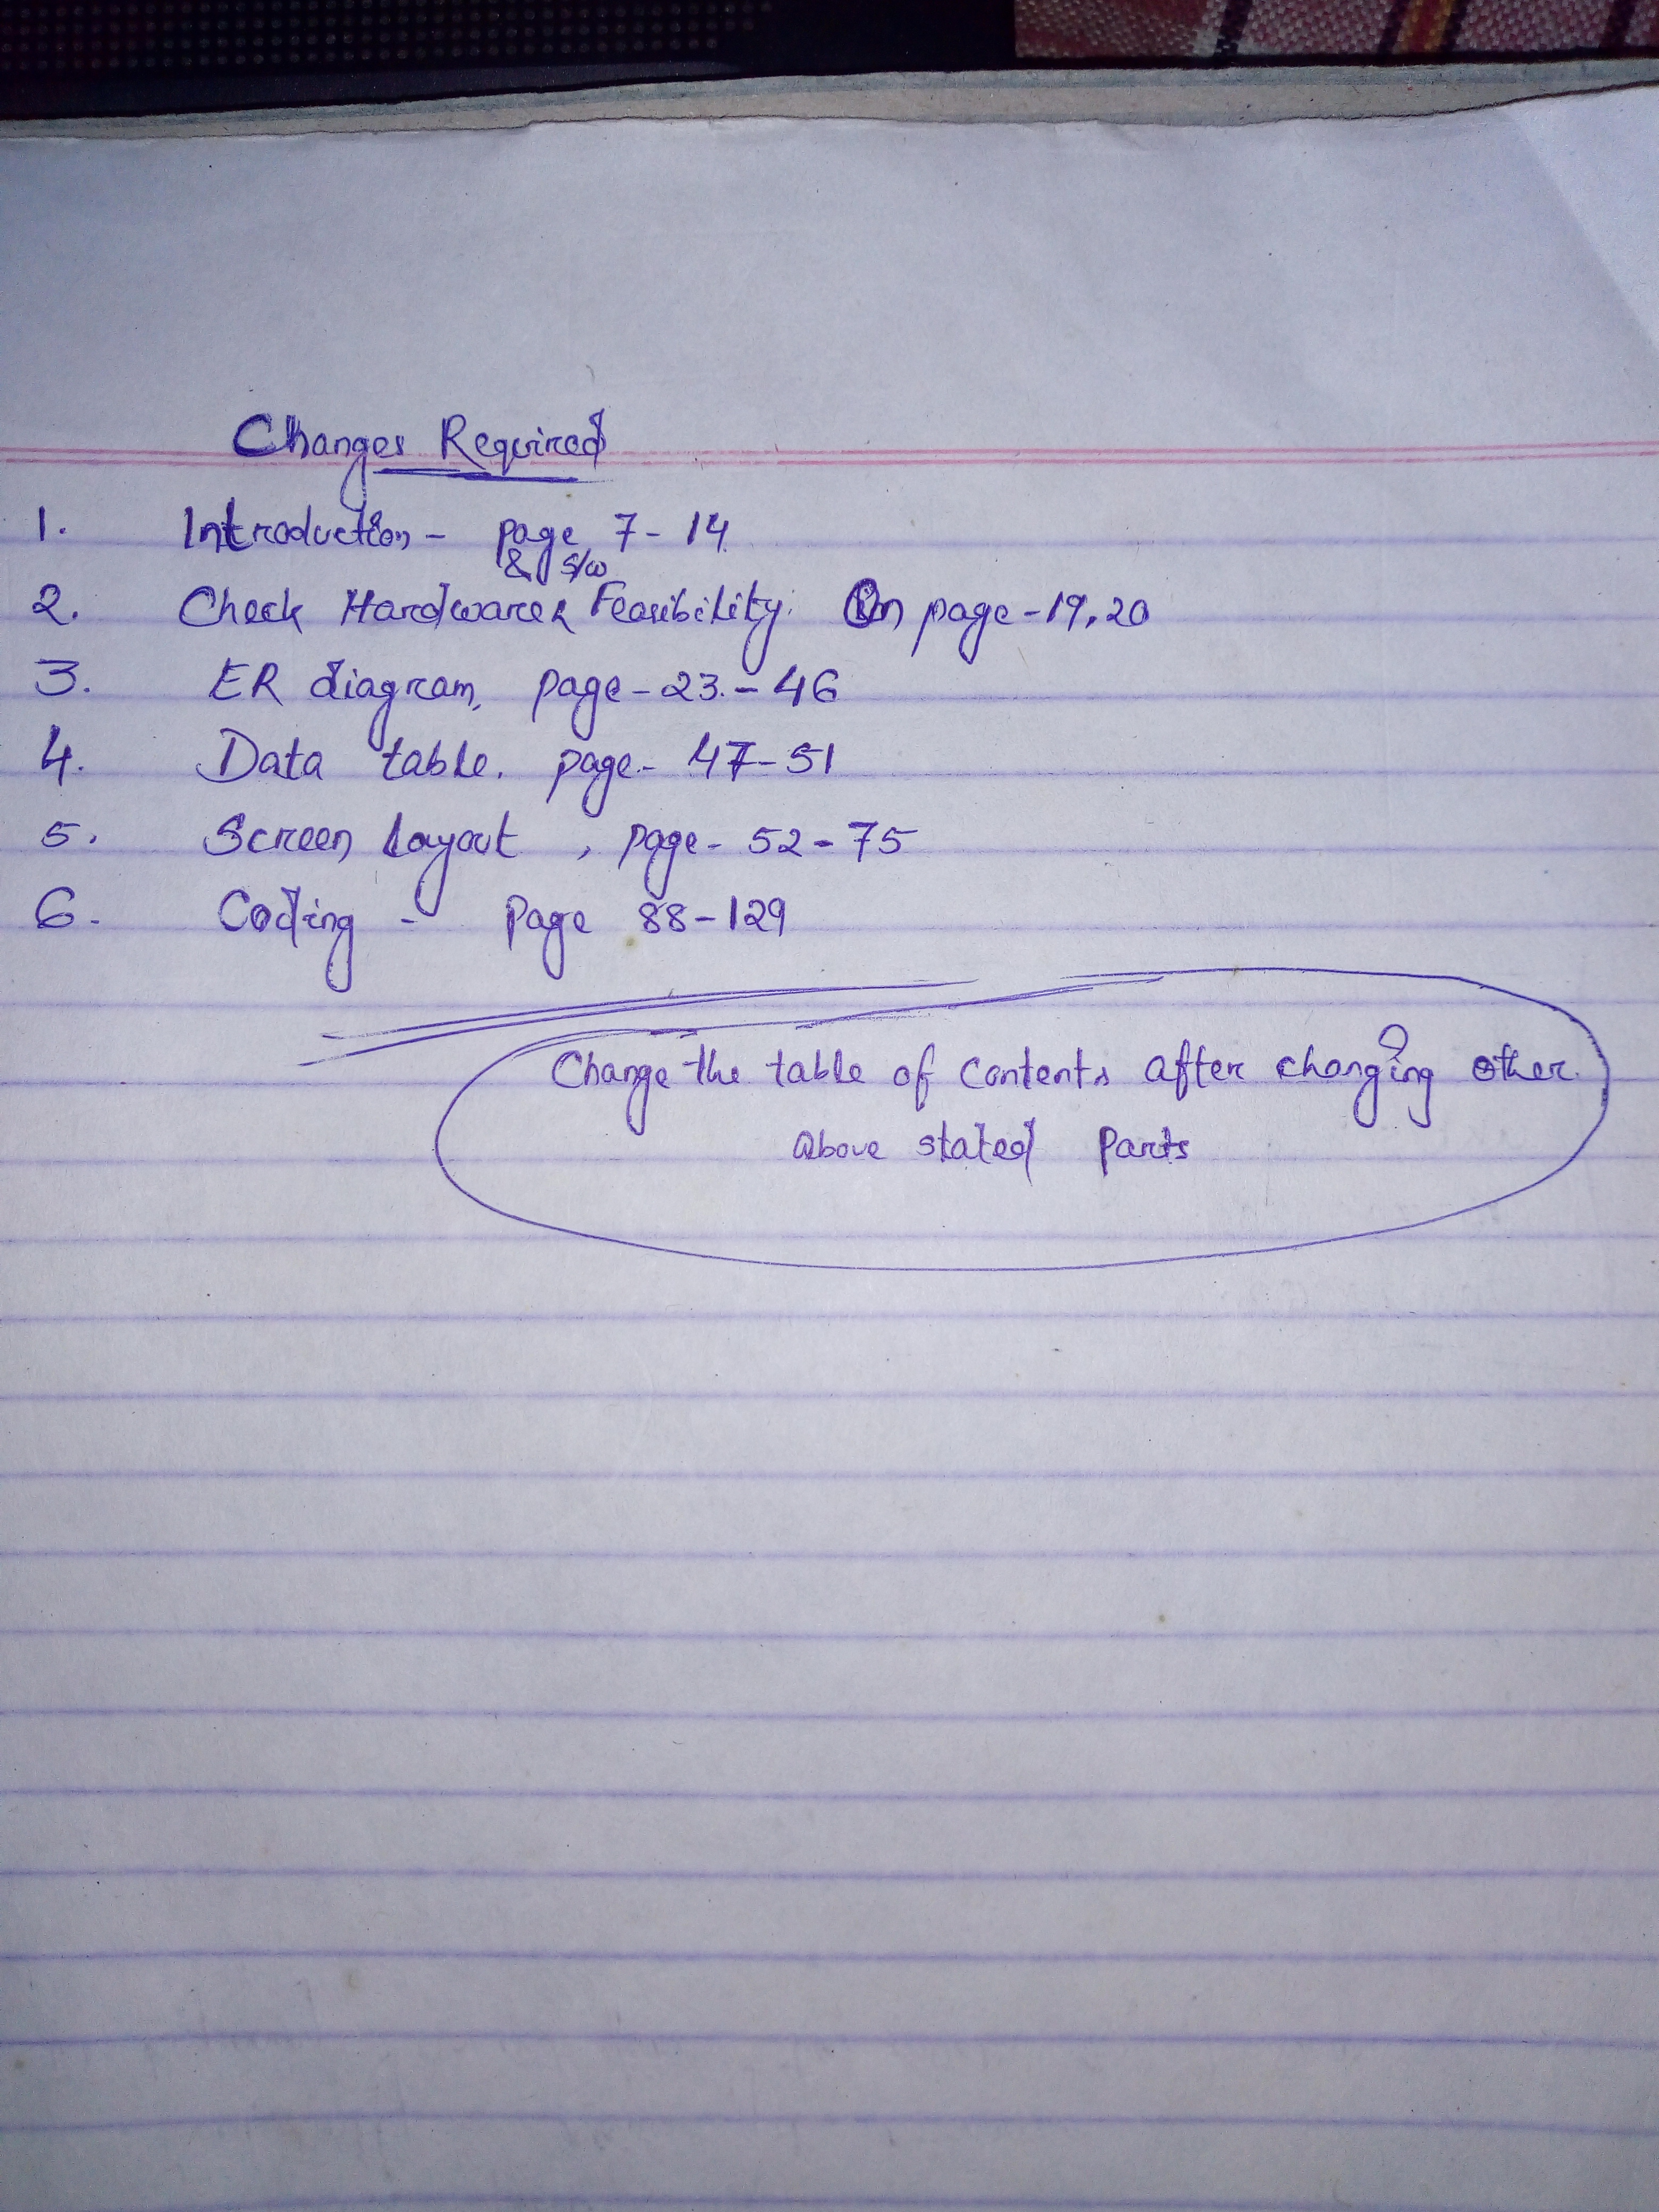 Changes Required
1. Introduction - page 7 - 14
& s/w
2. Check Hardware & Feasibility. On page - 19, 20
3. ER diagram, page - 23 - 46
4. Data table. page - 47 - 51
5. Screen Layout , page - 52 - 75
6. Coding - Page 88 - 129
Change the table of contents after changing other
above stated parts